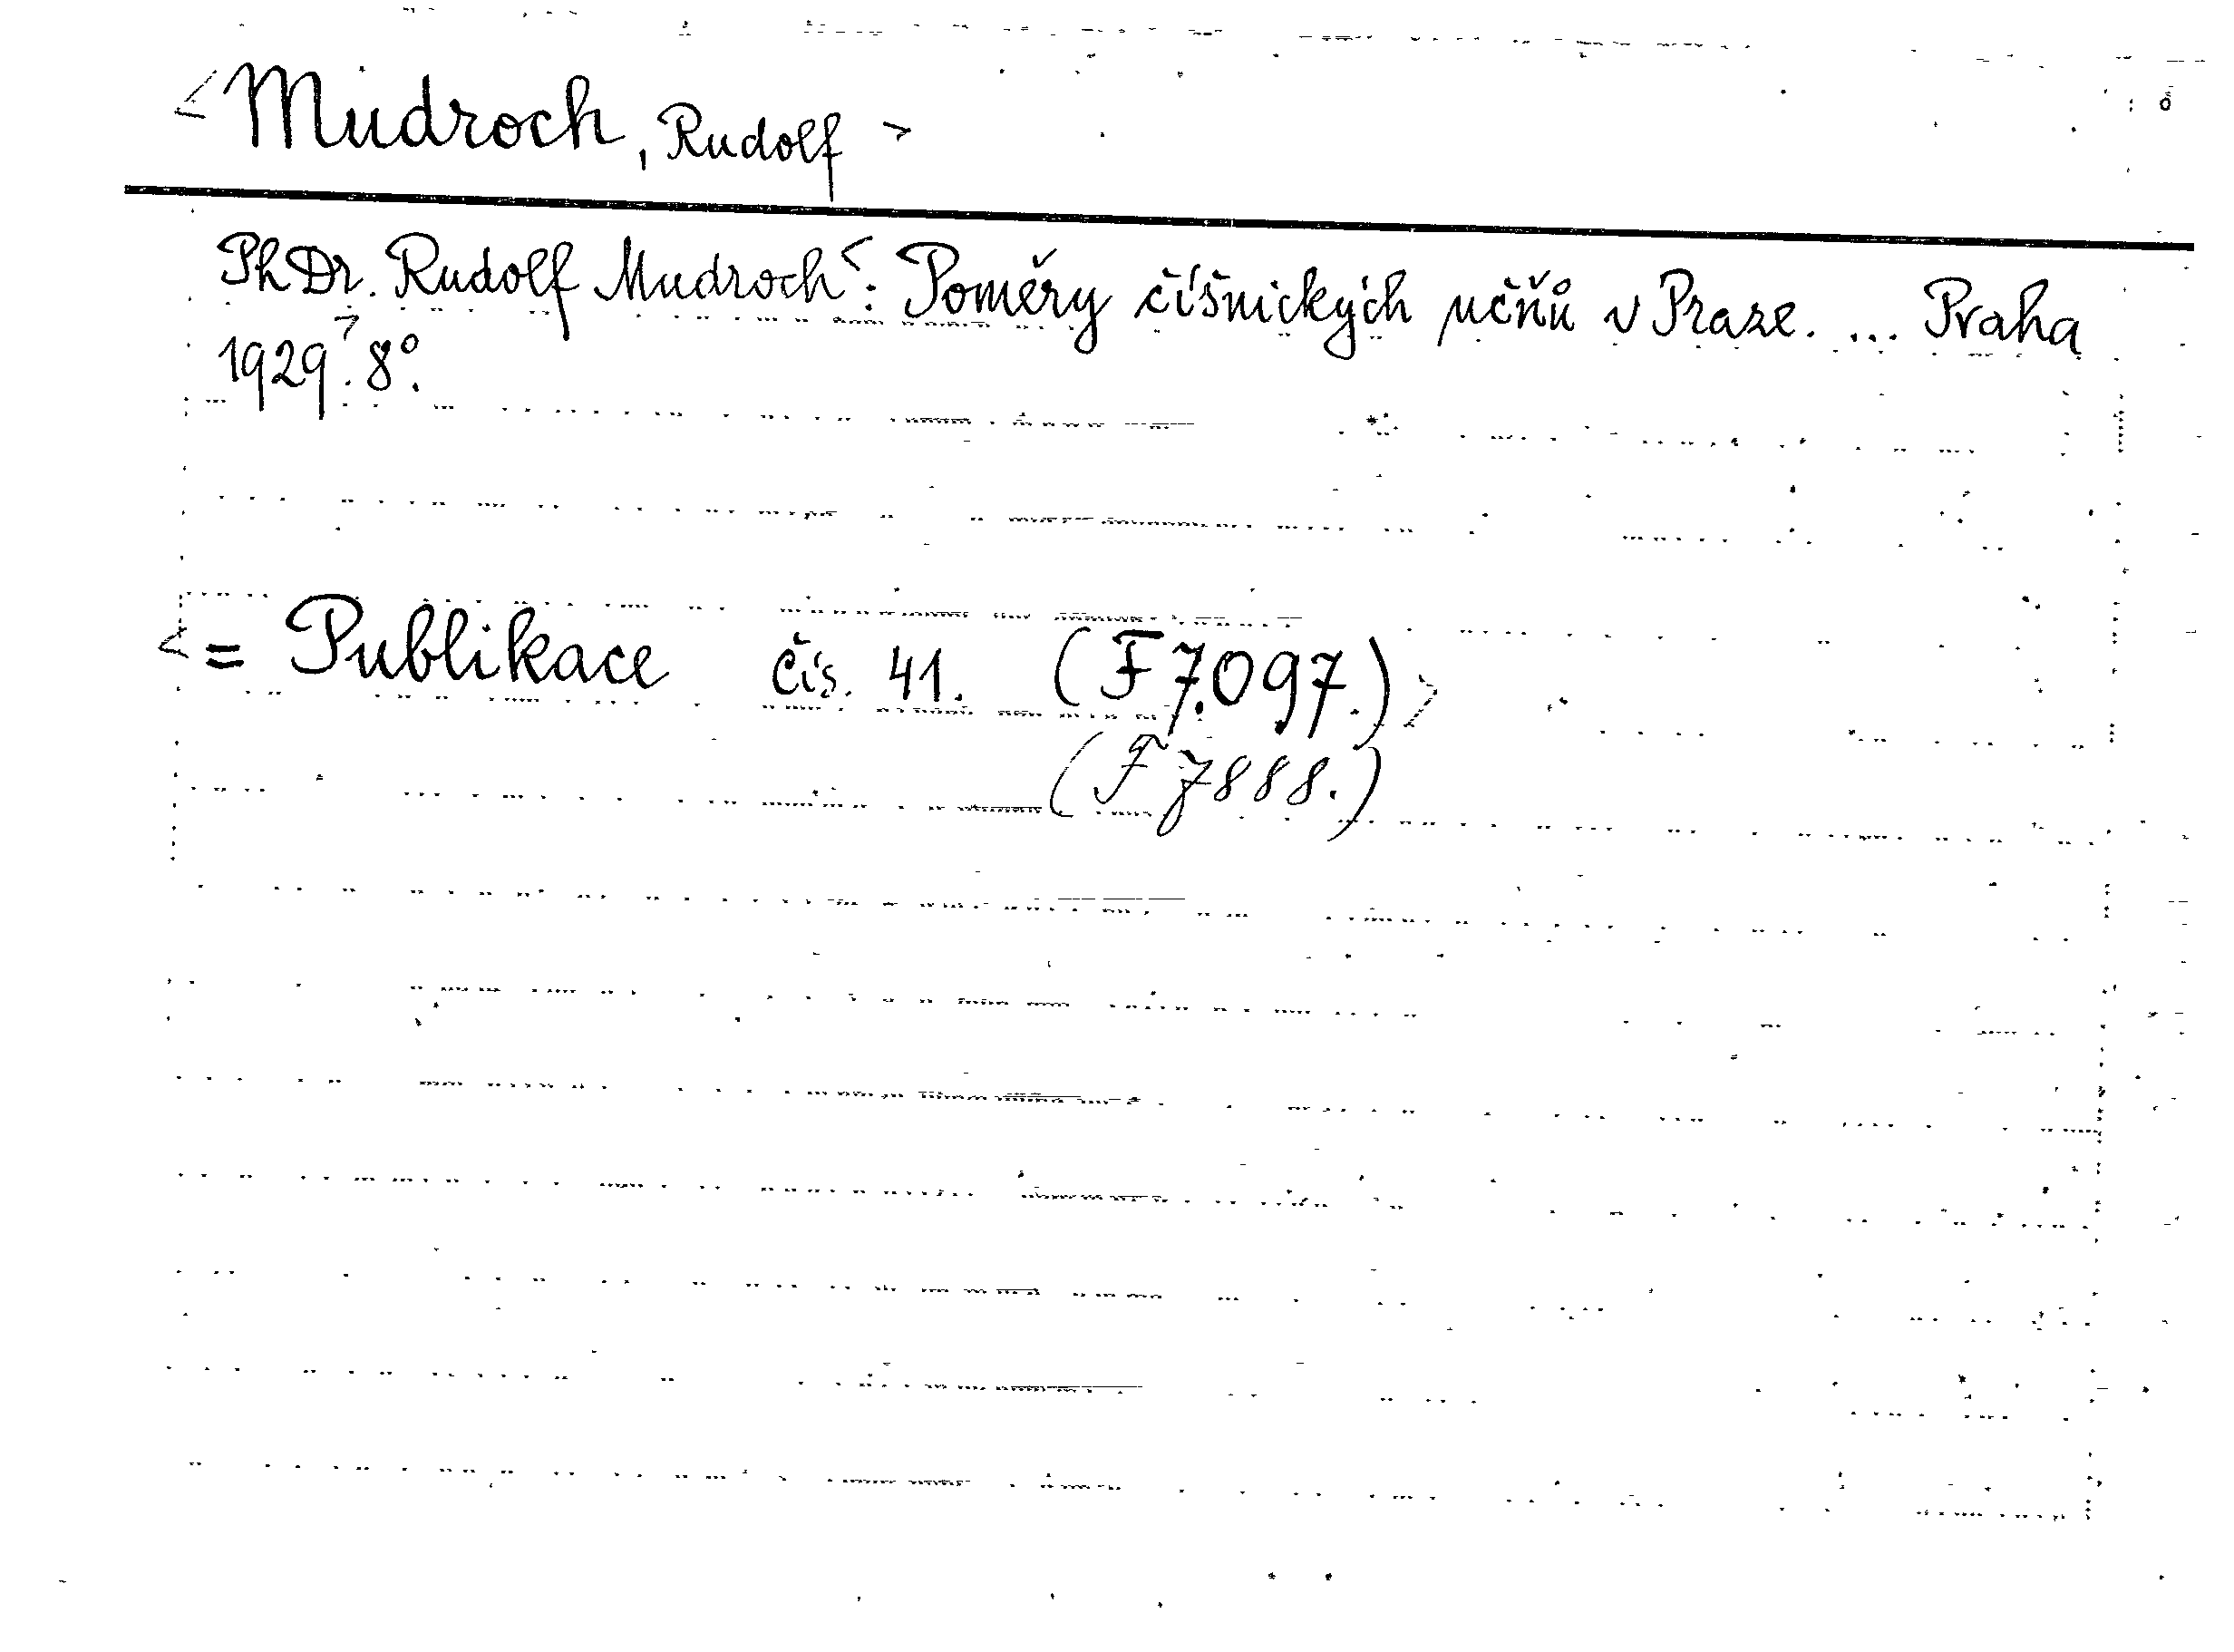 <Mudroch, Rudolf>
PhDr. Rudolf Mudroch<: Poměry číšnických učňů v Praze. ... Praha
1929>. 8°.
<= Publikace čís. 41. (F 7.097.)>
(F 7888.)